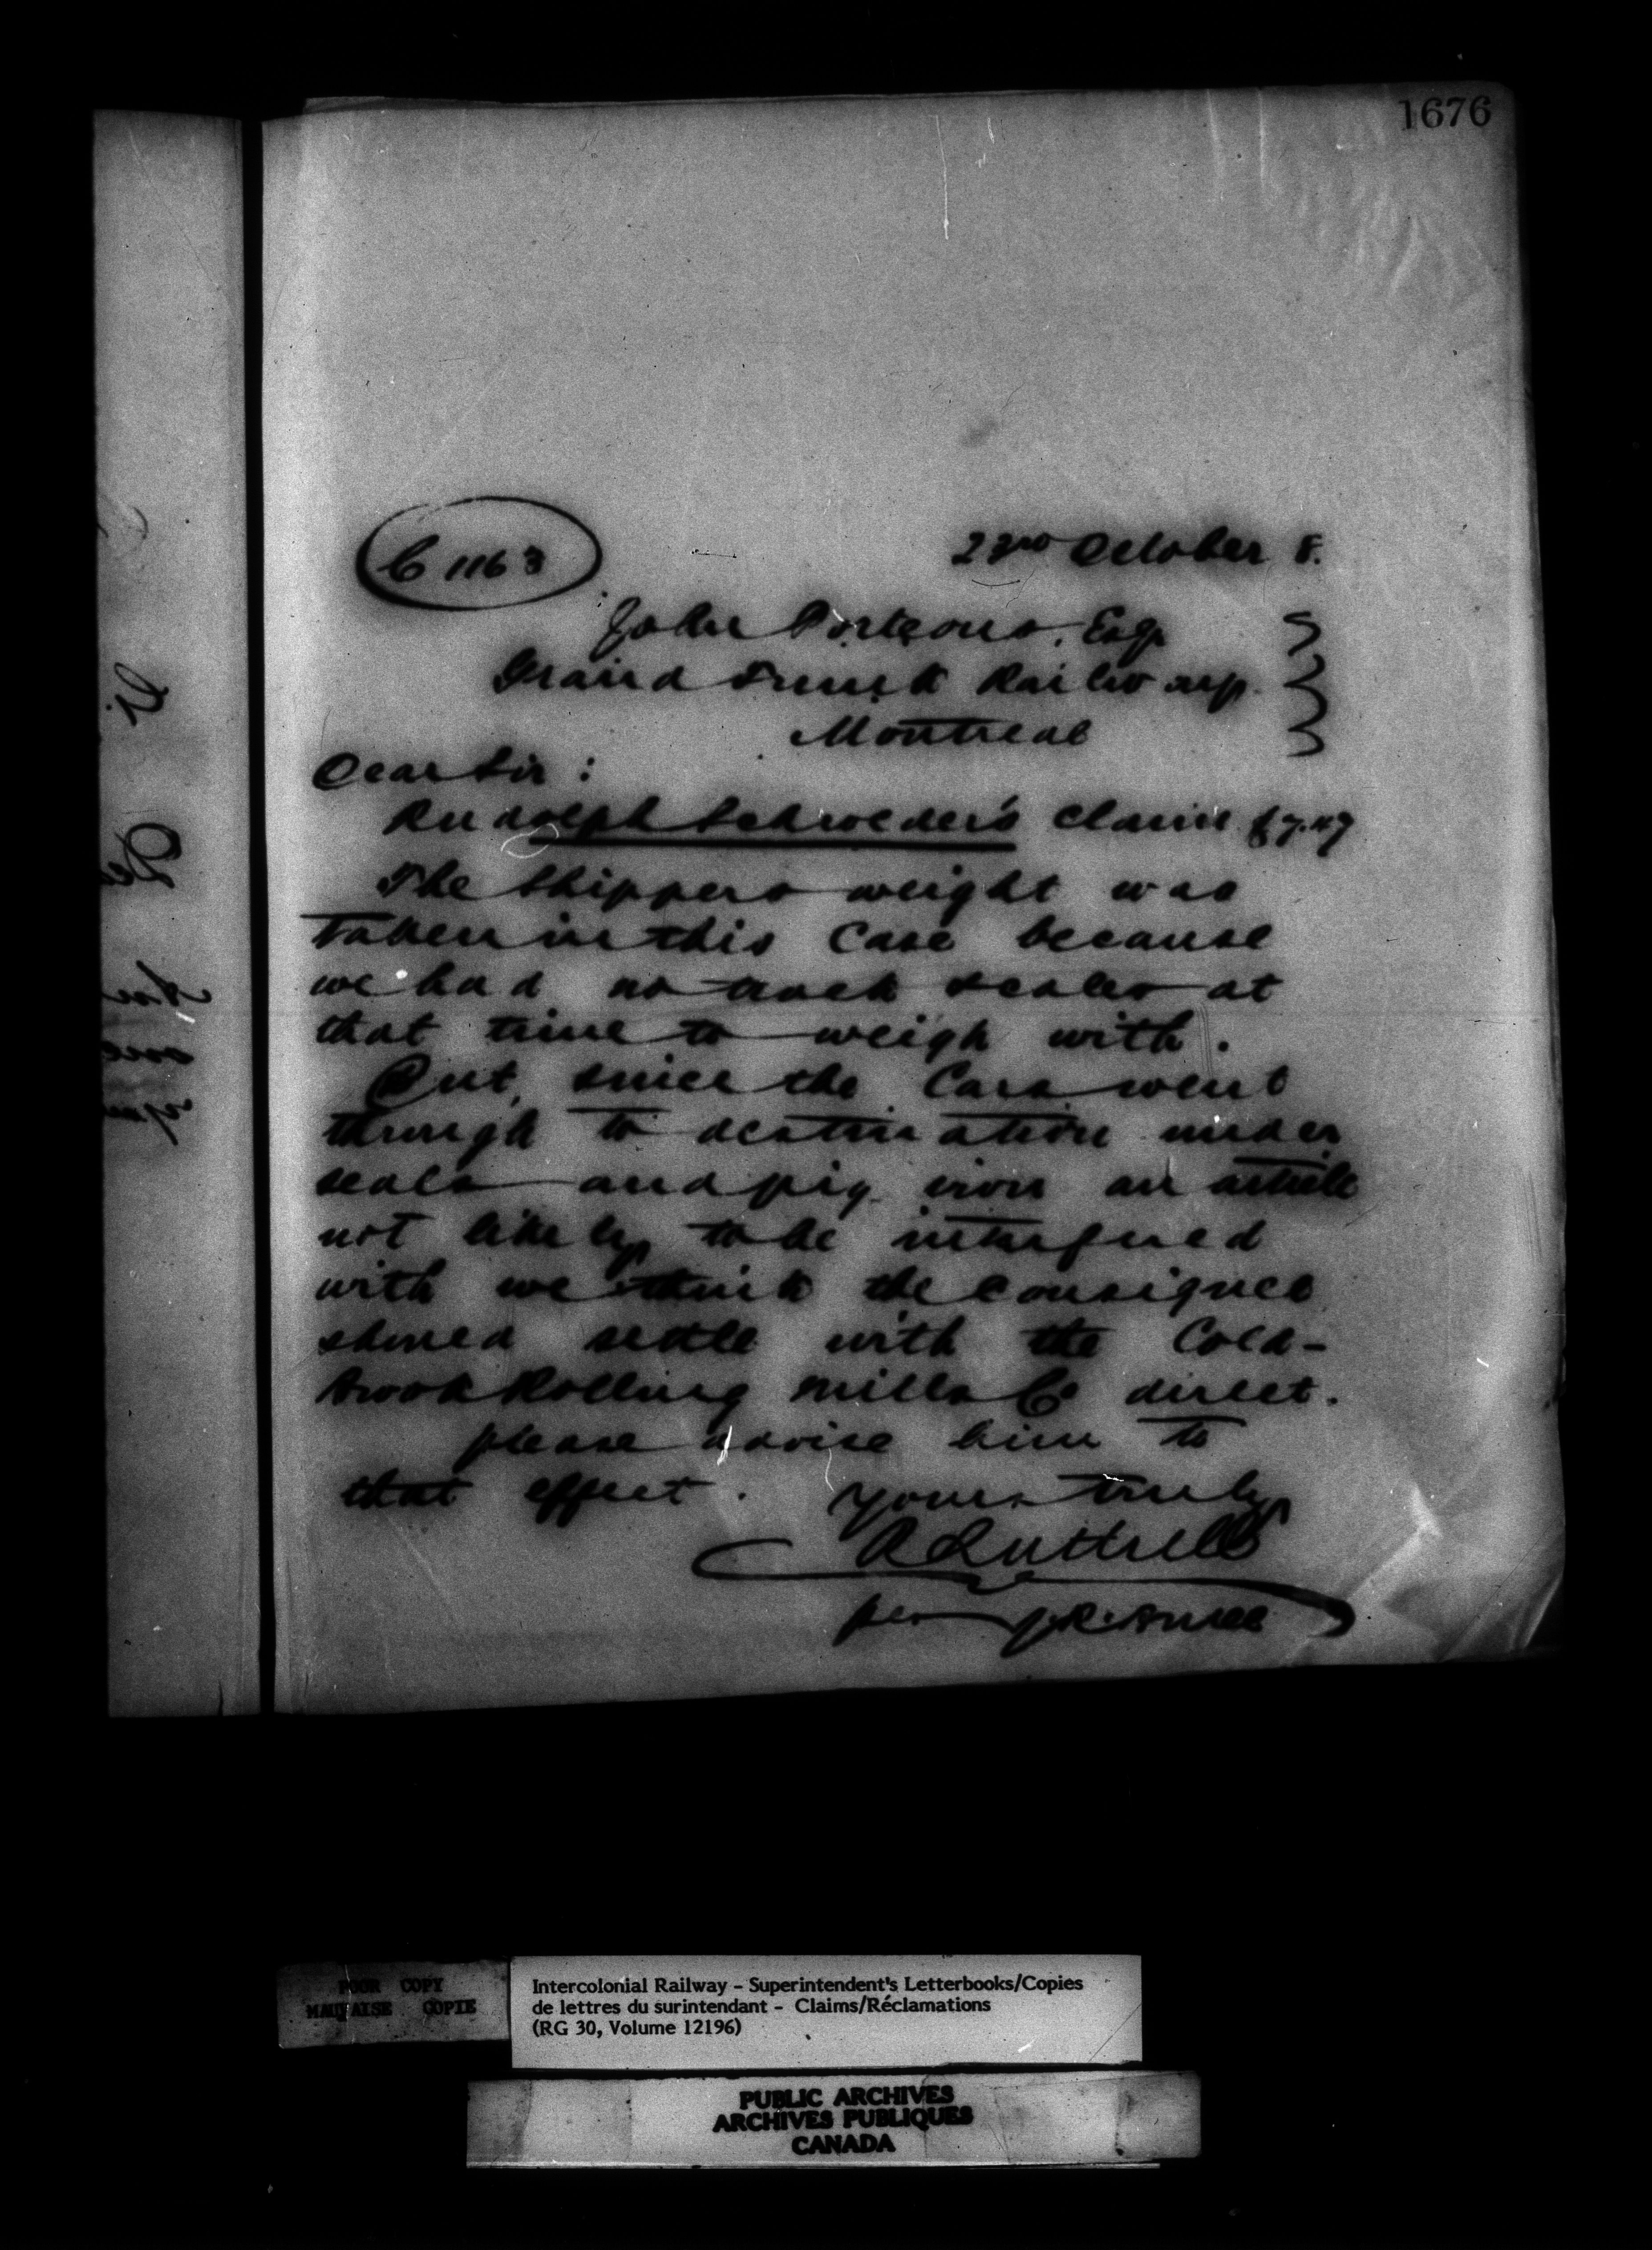 1676
C 1163
22nd October 8.
John Porteous, Esq.
Grand Trunk Railway.
Montreal
Dear Sir:
Rudolph Schroeder's Claim $7.47
The Shippers weight was
taken in this Case because
we had no track scales at
that time to weigh with.
But, since the Cars went
through to destination under
seals and pig iron an article
not likely to be interfered
with we think the consignee
should settle with the Cold-
brook Rolling Mills Co direct.
please advise him to
that effect. Yours truly
A Luttrell
per J.R.
POOR COPY
MAUVAISE COPIE
Intercolonial Railway - Superintendent's Letterbooks/Copies
de lettres du surintendant - Claims/Réclamations
(RG 30, Volume 12196)
PUBLIC ARCHIVES
ARCHIVES PUBLIQUES
CANADA